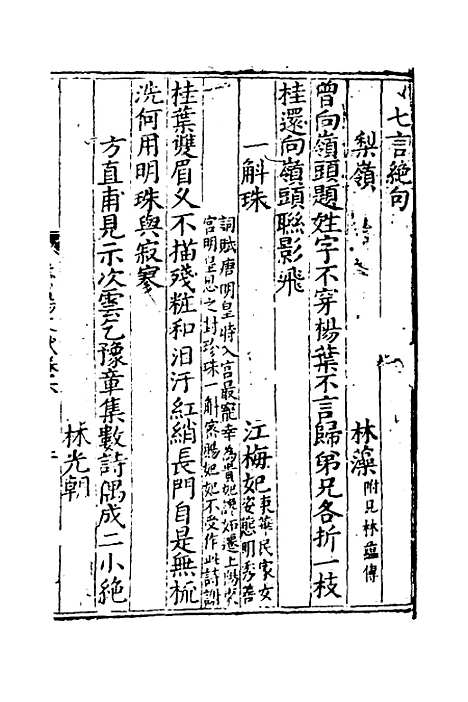 七言絕句
梨嶺 林藻 附兄林蘊傳
曾向嶺頭題姓字不穿楊葉不言歸弟兄各折一枝
桂還向嶺頭聯影飛
一斛珠 江梅妃 東華民家女姿態明秀善
詞賦唐明皇時入宮最寵幸為貴妃譖妬遷上陽
宮明皇思之封珍珠一斛密賜妃妃不受作此詩謝
桂葉雙眉乂不描殘粧和泪汙紅綃長門自是無梳
洗何用明珠與寂寥
方直甫見示次雲乞豫章集數詩偶成二小絕
林光朝